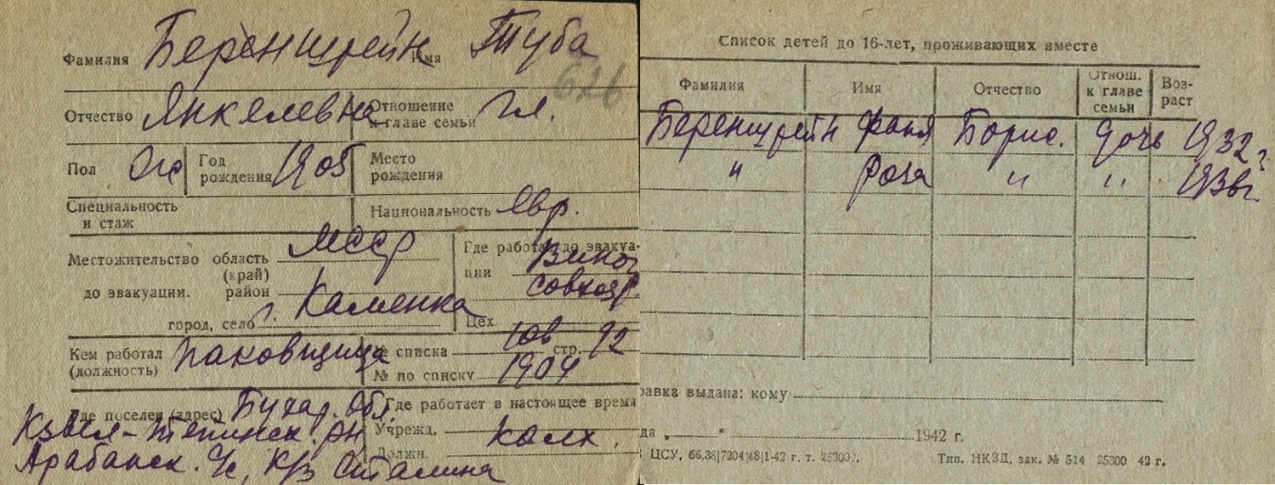 Фамилия Беренштейн Имя Туба
626
Отчество Янкелевна Отношение к главе семьи гл.
Пол ж Год рождения 1905 Место рождения
Специальность и стаж Национальность Евр.
Местожительство область МССР
(край)
до эвакуации. район
город, село г. Каменка
Где работал до эвакуации Вино совхоз
Цех
Кем работал (должность) паковщица
№ списка 10в стр. 92
№ по списку 1904
Где поселен (адрес) Бухар. Обл.
Кзыл-Тепинск. рн
Арабанск. с/с, к/з Сталина
Где работает в настоящее время
Учрежд. колх.
Должн.
Список детей до 16-лет, проживающих вместе
Фамилия Имя Отчество Отнош. к главе семьи Возраст
Беренштейн Фаня Борис. дочь 1932г
" Роза " " 1936г.
равка выдана: кому
да „ " 1942 г.
ЦСУ, 66,38|7204|48|1-42 г. т. 25300. Тип. НКВД, зак. № 514 25300 42 г.